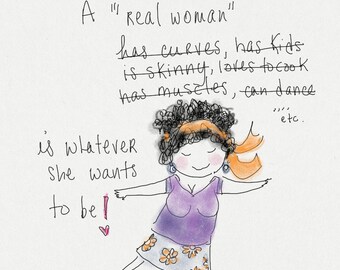 A "real woman"
has curves, has kids
is skinny, loves to cook
has muscles, can dance
"" etc.
is whatever
she wants
to be!